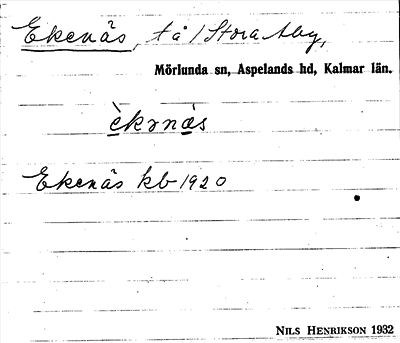 Ekenäs, t å /Stora Aby,
Mörlunda sn, Aspelands hd, Kalmar län.
èkənæ̀s
Ekenäs kb 1920
NILS HENRIKSON 1932